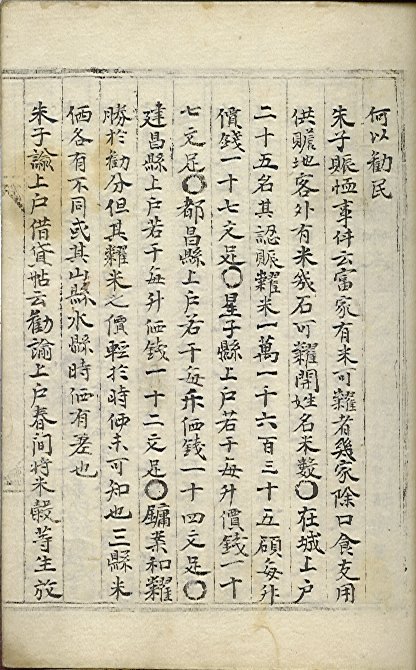 何以勸民
朱子賑恤事件云富家有米可糶者幾家除口食支用
供贍地客外有米幾石可糶開姓名米數○在城上戶
二十五名其認賑糶米一萬一千六百三十五碩每升
價錢一十七文足○星子縣上戶若干每升價錢一十
七文足○都昌縣上戶若干每升価錢一十四文足○
建昌縣上戶若干每升価錢一十二文足○鏞業和糶
勝於勸分但其糶米之價輕於時価未可知也三縣米
価各有不同或其山縣水縣時価有差也
朱子諭上戶借貸帖云勸諭上戶春間將米穀等生放